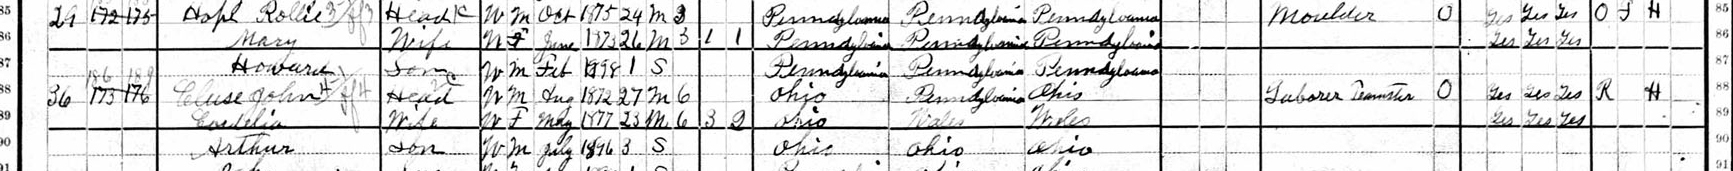 85 29 172 175 Hopl Rollie Head W M Oct 1875 24 M 3 Pennsylvania Pennsylvania Pennsylvania Moulder 0 Yes Yes Yes O F H 85
86 Mary Wife W F June 1873 26 M 3 1 1 Pennsylvania Pennsylvania Pennsylvania Yes Yes Yes 86
87 Howard Son W M Feb 1898 1 S Pennsylvania Pennsylvania Pennsylvania 87
88 36 173 176 Cluse John Head W M Aug 1872 27 M 6 Ohio Pennsylvania Ohio Laborer Teamster 0 Yes Yes Yes R H 88
89 Cordelia Wife W F May 1877 23 M 6 3 2 Ohio Wales Wales Yes Yes Yes 89
90 Arthur Son W M July 1896 3 S Ohio Ohio Ohio 90
91 91